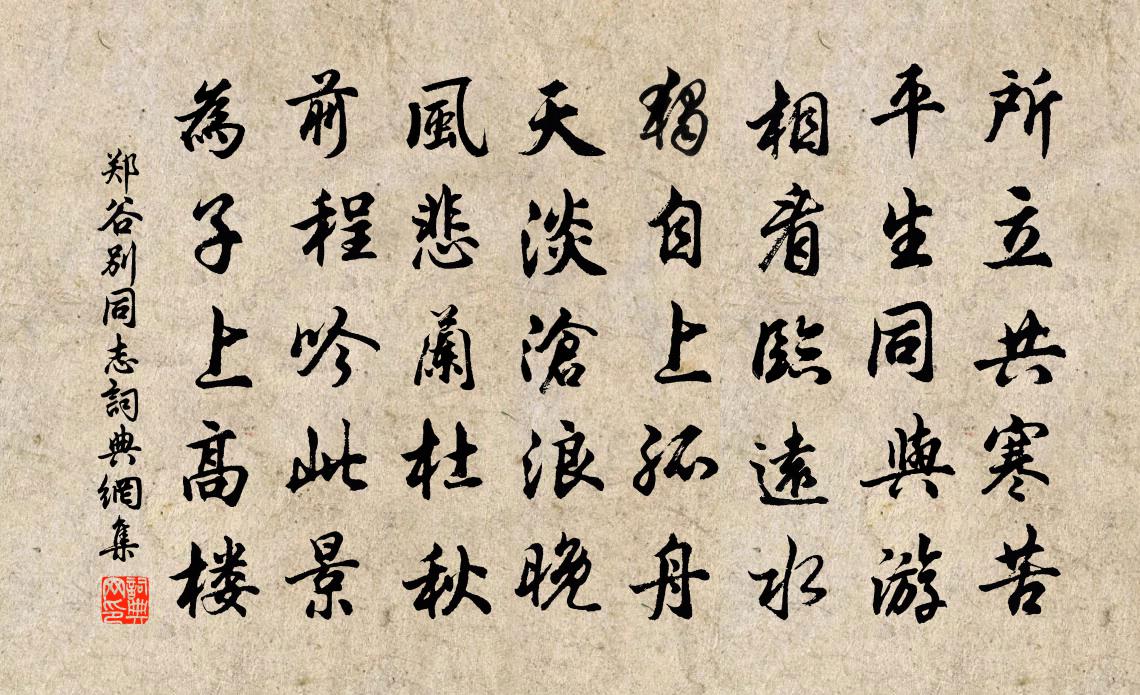 所立共寒苦
平生同與游
相看臨遠水
獨自上孤舟
天淡滄浪晚
風悲蘭杜秋
前程吟此景
為子上高楼
郑谷别同志詞典網集
詞典网印